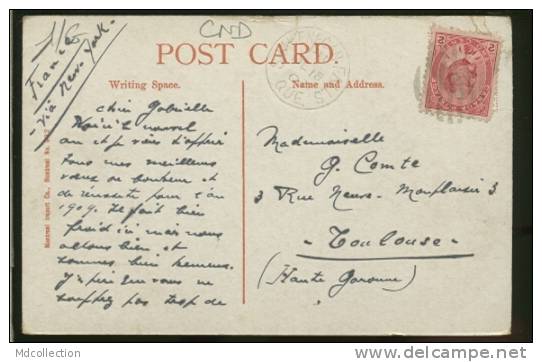 CND
1/5
France
via New York
POST CARD.
Writing Space.
Name and Address.
QUE
2 2
chère Gabrielle
Voici Noël
et je viens t'offrir
tous mes meilleurs
vœux de bonheur et
de réussite pour l'an
1909. Il fait bien
froid ici mais nous
allons bien et
sommes bien heureux.
J'espère que vous ne
souffrez pas trop de
Mademoiselle
G. Comte
3 Rue Neuve-Monplaisir 3
- Toulouse -
(Haute Garonne)
Montreal Import Co., Montreal No.
MDcollection
http://www.delcampe.net